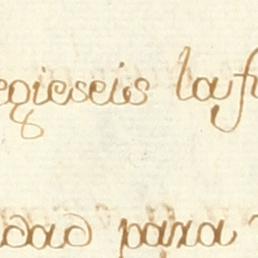 egieseis la fu
dad para